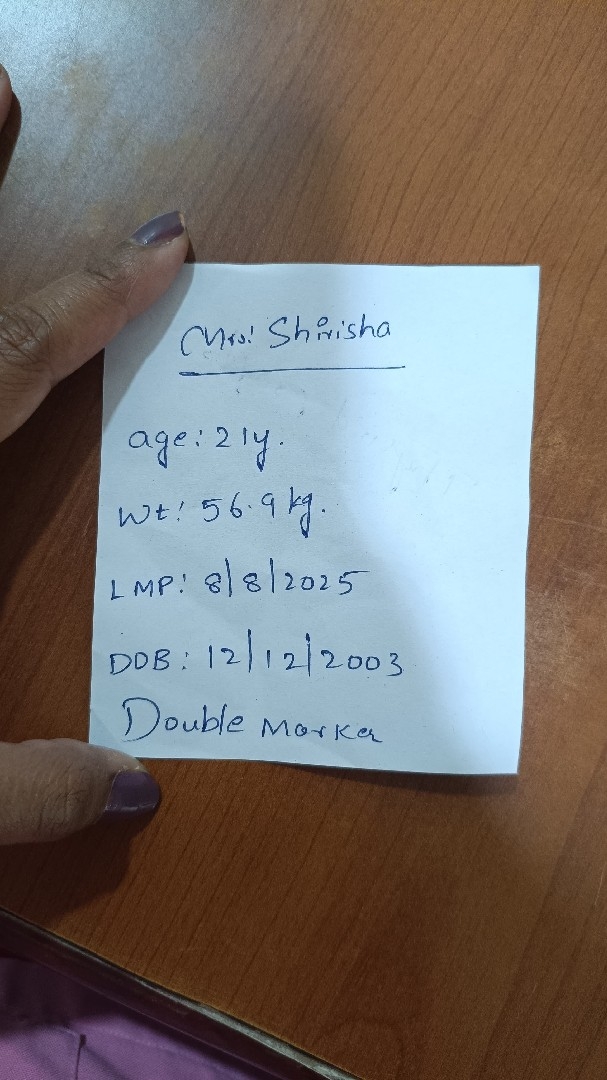 Mrs: Shirisha
age: 21y.
Wt: 56.9 kg.
LMP: 8/8/2025
DOB: 12/12/2003
Double Marker